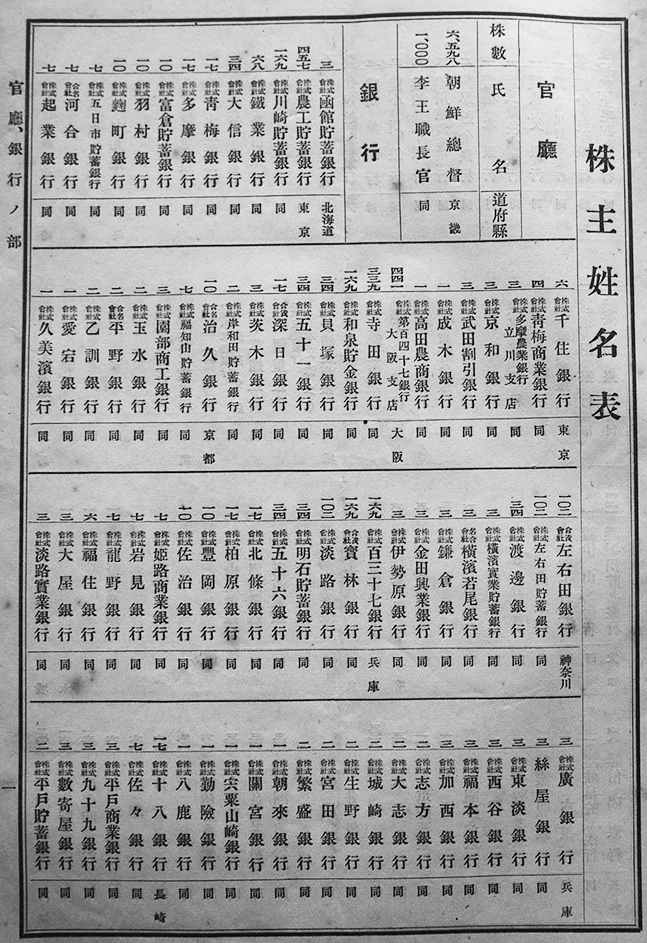 株主姓名表
株數 氏名 道府縣
官廳
六、五九八 朝鮮總督 京畿
一、〇〇〇 李王職長官 同
銀行
三 株式會社函館貯蓄銀行 北海道
四五七 株式會社農工貯蓄銀行 東京
一六九 株式會社川崎貯蓄銀行 同
六八 株式會社鐵業銀行 同
三四 株式會社大信銀行 同
一七 株式會社靑梅銀行 同
一七 株式會社多摩銀行 同
一〇 株式會社富倉貯蓄銀行 同
一〇 株式會社羽村銀行 同
一〇 株式會社麴町銀行 同
七 株式會社五日市貯蓄銀行 同
七 合名會社河合銀行 同
七 株式會社起業銀行 同
六 株式會社千住銀行 東京
四 株式會社靑梅商業銀行 同
三 株式會社多摩農業銀行立川支店 同
三 株式會社京和銀行 同
三 株式會社武田割引銀行 同
一 株式會社成木銀行 同
一 株式會社高田農商銀行 同
四四一 株式會社第百四十七銀行大阪支店 大阪
三三九 株式會社寺田銀行 同
一六九 株式會社和泉貯金銀行 同
三四 株式會社貝塚銀行 同
三四 株式會社五十一銀行 同
一七 合資會社深日銀行 同
三 株式會社茨木銀行 同
二 株式會社岸和田貯蓄銀行 同
一〇 合名會社治久銀行 京都
七 株式會社福知山貯蓄銀行 同
三 株式會社園部商工銀行 同
二 株式會社玉水銀行 同
二 合名會社平野銀行 同
二 株式會社乙訓銀行 同
一 株式會社愛宕銀行 同
一 株式會社久美濱銀行 同
一〇二 合資會社左右田銀行 神奈川
一〇二 株式會社左右田貯蓄銀行 同
三四 株式會社渡邊銀行 同
三 株式會社橫濱實業貯蓄銀行 同
三 合名會社橫濱若尾銀行 同
三 株式會社鎌倉銀行 同
三 株式會社金田興業銀行 同
三 株式會社伊勢原銀行 同
一六九 株式會社百三十七銀行 兵庫
一六九 合資會社寶林銀行 同
一〇二 株式會社淡路銀行 同
三四 株式會社明石貯蓄銀行 同
三四 株式會社五十六銀行 同
一七 株式會社北條銀行 同
一七 株式會社柏原銀行 同
一〇 株式會社豐岡銀行 同
一〇 株式會社佐治銀行 同
七 株式會社姬路商業銀行 同
七 株式會社岩見銀行 同
七 株式會社龍野銀行 同
六 株式會社福住銀行 同
三 株式會社大屋銀行 同
三 株式會社淡路實業銀行 同
三 株式會社廣銀行 兵庫
三 絲屋銀行 同
三 株式會社東淡銀行 同
三 株式會社西谷銀行 同
三 株式會社福本銀行 同
三 株式會社加西銀行 同
二 株式會社志方銀行 同
二 株式會社大志銀行 同
二 株式會社城崎銀行 同
二 株式會社生野銀行 同
二 株式會社宮田銀行 同
二 株式會社繁盛銀行 同
一 株式會社朝來銀行 同
一 株式會社關宮銀行 同
一 株式會社宍粟山崎銀行 同
一 株式會社勤險銀行 同
一 株式會社八鹿銀行 同
一七 株式會社十八銀行 長崎
七 株式會社佐々銀行 同
三 株式會社平戶商業銀行 同
三 株式會社九十九銀行 同
三 株式會社數寄屋銀行 同
二 株式會社平戶貯蓄銀行 同
官廳、銀行ノ部
一